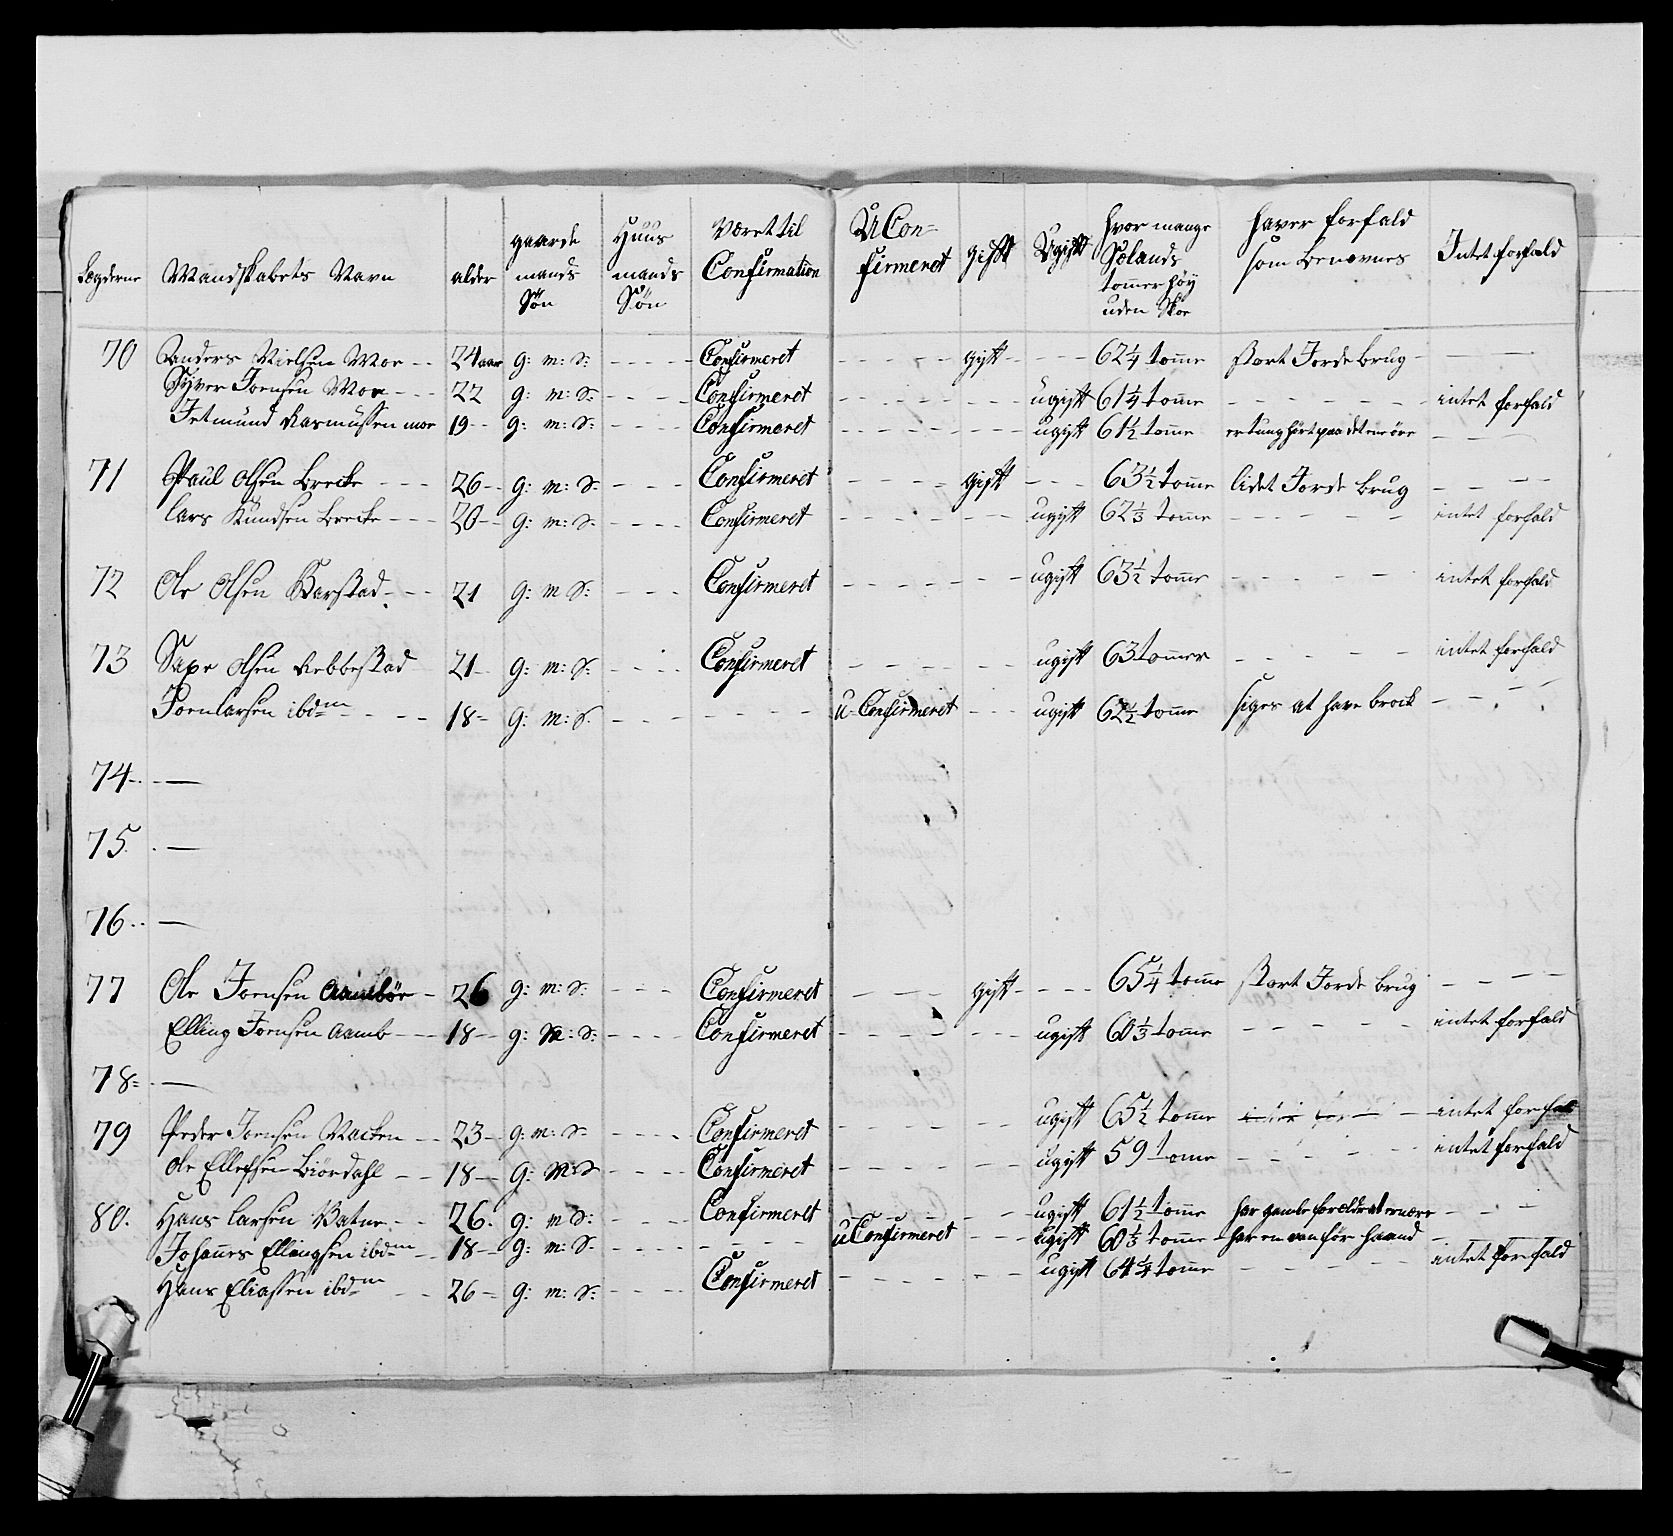 Lægderne Mandskabets Navn alder gaarde mands Søn Huus mands Søn Været til Confirmation UCon= firmeret gift Ugift hvor mange Sælands tomer høy uden Skoe haver forfald som benævnes Intet forfald
70 Anders Nielsen Moe - - 24 aar g: m: S: - - - - Confirmeret - - - - - gift - - - - 62 1/4 tomme stort Jorde brug - - -
Syver Joensen Moe - - - 22 g: m: S: - - - - Confirmeret - - - - - - - ugift 61 1/4 tomme - - - - - intet forfald
Jetmund Rasmussen moe 19 - - g: m: S: - - - - Confirmeret - - - - - - - ugift 61 1/2 tomme er tung hört paa det ene öre - - -
71 Paul Olsen Brecke - - - 26 - - g: m: S: - - - Confirmeret - - - - - gift - - - 63 1/2 tomme lidet Jorde brug - - - -
Lars Knudsen Brecke - - - 20 - - g: m: S: - - - - Confirmeret - - - - - - ugift 62 1/3 tomme - - - - - intet forfald
72 Ole Olsen Karstad - - - 21 g: m S: - - - Confirmeret - - - - - - - ugift 63 1/2 tomme - - - - - intet forfald
73 Saxe Olsen Aebbestad 21 - g: m: S: - - - Confirmeret - - - - - - ugift 63 tommer - - - - - intet forfald
Joen Larsen ibdm - - - - 18 - g: m: S. - - - - - - - U-Confirmeret - - - ugift 62 1/2 tomme siges at have brock - - - -
74 - - —
75. - —
76 - - —
77 Ole Joensen Aamböe - 26 g: m: S: - - - Confirmeret - - - gift - - - - 65 1/4 tomme stort Jorde brug - - - -
Elling Joensen Aamb - - - 18 - - g: m: S: - - - - Confirmeret - - - - - - ugift 60 1/3 tomme - - - - - intet forfald
78 = - —
79 Peder Joensen Macken - - 23 - g: m: S: - - - - Confirmeret - - - - - - ugift 65 1/2 tomme intet for - - - intet forfald
Ole Ellefsen Biördahl - - 18 - - g: m: S - - - - Confirmeret - - - - - - ugift 59 tome - - - - - intet forfald
80. Hans Larsen Vatne - - 26. g: m S: - - - - Confirmeret - - - - - - ugift 61 1/2 tomme har gamle forældre at ernære - - -
Johannes Ellingsen ibdm - - 18 - - g: m: S: - - - - - - - uConfirmeret - - - ugift 60 1/3 tomme - har en vanför haand - - -
Hans Eliassen ibdm - - 26 - g: m: S: - - - - Confirmeret - - - - - - ugift 64 1/4 tomme - - - - - intet forfald